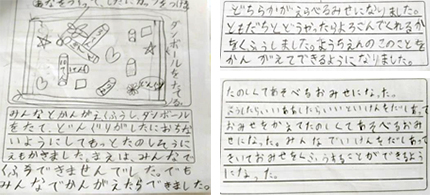 あなをつくって、したに、カップをつける
ダンボールをたてる
みんなとかんがえくふうし、ダンボール
をたて、どんぐりがしたにおちな
いようにしてもっとたのしそうに
えもかきました。まえは、みんなで
くふうできませんでした。でも
みんなでかんがえたらできました。
どちらかがえらべるみせになりました。
ともだちとどうやったらよろこんでくれるか
をくふうしました。ようちえんのこのことを
かんがえてできるようになりました。
たのしくてあそべるおみせになった。
こうしたらいいああしたらいいといけんをだしあって
おみせをかえてたのしくてあそべるおみ
せになった。みんなでいけんをだしあって
きいておみせをくふうすることができるよう
になった。